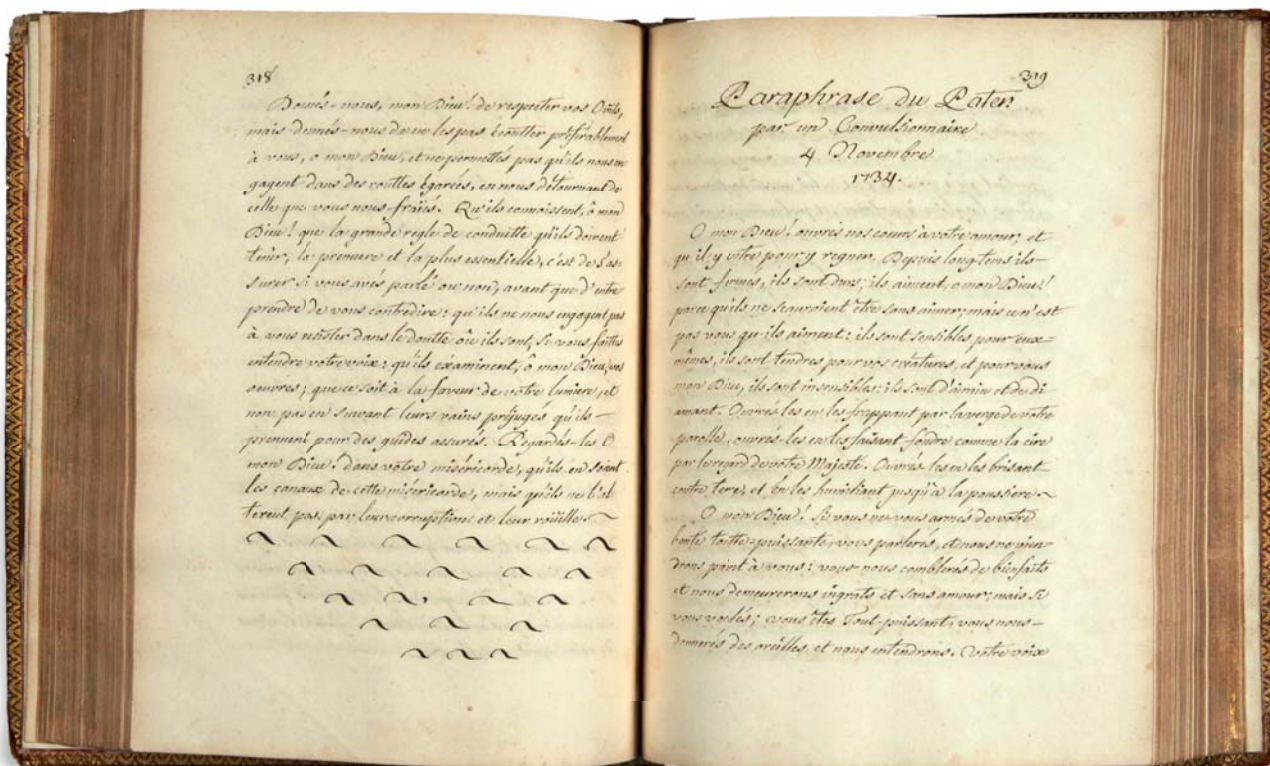 318
Donnés-nous, mon Dieu! de respecter vos Oints,
mais donnés-nous de ne les pas écoutter préférablement
à vous, o mon Dieu, et ne permettés pas qu'ils nous en
gagent dans des routtes égarées, en nous détournant de
celle que vous nous fraiés. Qu'ils connoissent, ô mon
Dieu! que la grande regle de conduitte qu'ils doivent
tenir, la premiere et la plus essentielle, c'est de s'as
surer si vous avés parlé ou non, avant que d'entre
prendre de vous contredire: qu'ils ne nous engagent pas
à vous resister dans le doutte où ils sont, si vous faittes
entendre votre voix: qu'ils éxaminent, ô mon Dieu, vos
oeuvres; que ce soit à la faveur de votre lumiere, et
non pas en suivant leurs vains préjugés qu'ils
prennent pour des guides assurés. Regardés-les O
mon Dieu! dans votre miséricorde, qu'ils en soient
les canaux de cette miséricorde, mais qu'ils ne l'al
terent pas par leur corruption et leur roüille
319
Paraphrase du Pater
par un Convulsionnaire
4 Novembre
1734.
O mon Dieu! ouvrés nos coeurs à votre amour, et
qu'il y entre pour y regner. Depuis long-tems ils
sont fermés, ils sont durs; ils aiment, o mon Dieu!
parce qu'ils ne sçauroient être sans aimer; mais ce n'est
pas vous qu'ils aiment: ils sont sensibles pour eux-
mêmes, ils sont tendres pour vos créatures, et pour vous
mon Dieu, ils sont insensibles: ils sont d'airain et de di
amant. Ouvrés-les en les frappant par la verge de votre
parolle, ouvrés-les en les faisant fondre comme la cire
par le regard de votre Majesté. Ouvrés-les en les brisant
contre terre, et en les humiliant jusqu'à la poussiere
O mon Dieu! Si vous ne vous armés de votre
bonté toutte-puissante, vous parlerés, et nous ne vien-
drons point à vous: vous nous comblerés de bienfaits
et nous demeurerons ingrats et sans amour; mais si
vous voulés; vous êtes Tout-puissant, vous nous
donnerés des oreilles, et nous entendrons. Votre voix